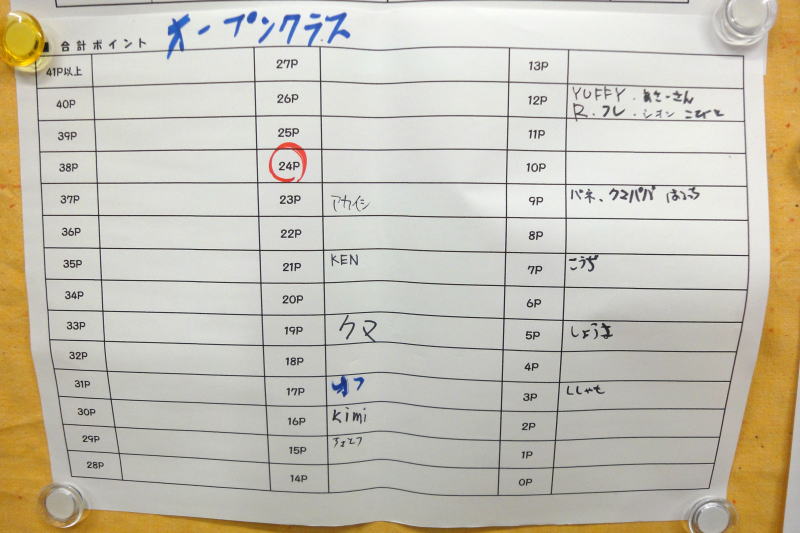 ■ 合計ポイント オープンクラス
41P以上
40P
39P
38P
37P
36P
35P
34P
33P
32P
31P
30P
29P
28P
27P
26P
25P
24P
23P アカイシ
22P
21P KEN
20P
19P クマ
18P
17P オフ
16P kimi
15P
14P
13P
12P YUFFY. あさーさん
R. フレ. シオン こひと
11P
10P
9P バネ、クマパパ はっち
8P
7P こうぢ
6P
5P しょうま
4P
3P ししゃも
2P
1P
0P